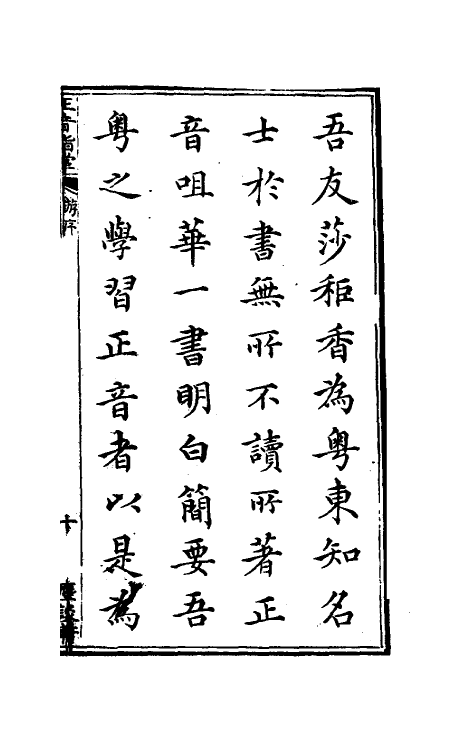 吾友莎秬香為粤東知名
士於書無所不讀所著正
音咀華一書明白簡要吾
粤之學習正音者以是為
正音咀華
游序
十
塵談軒